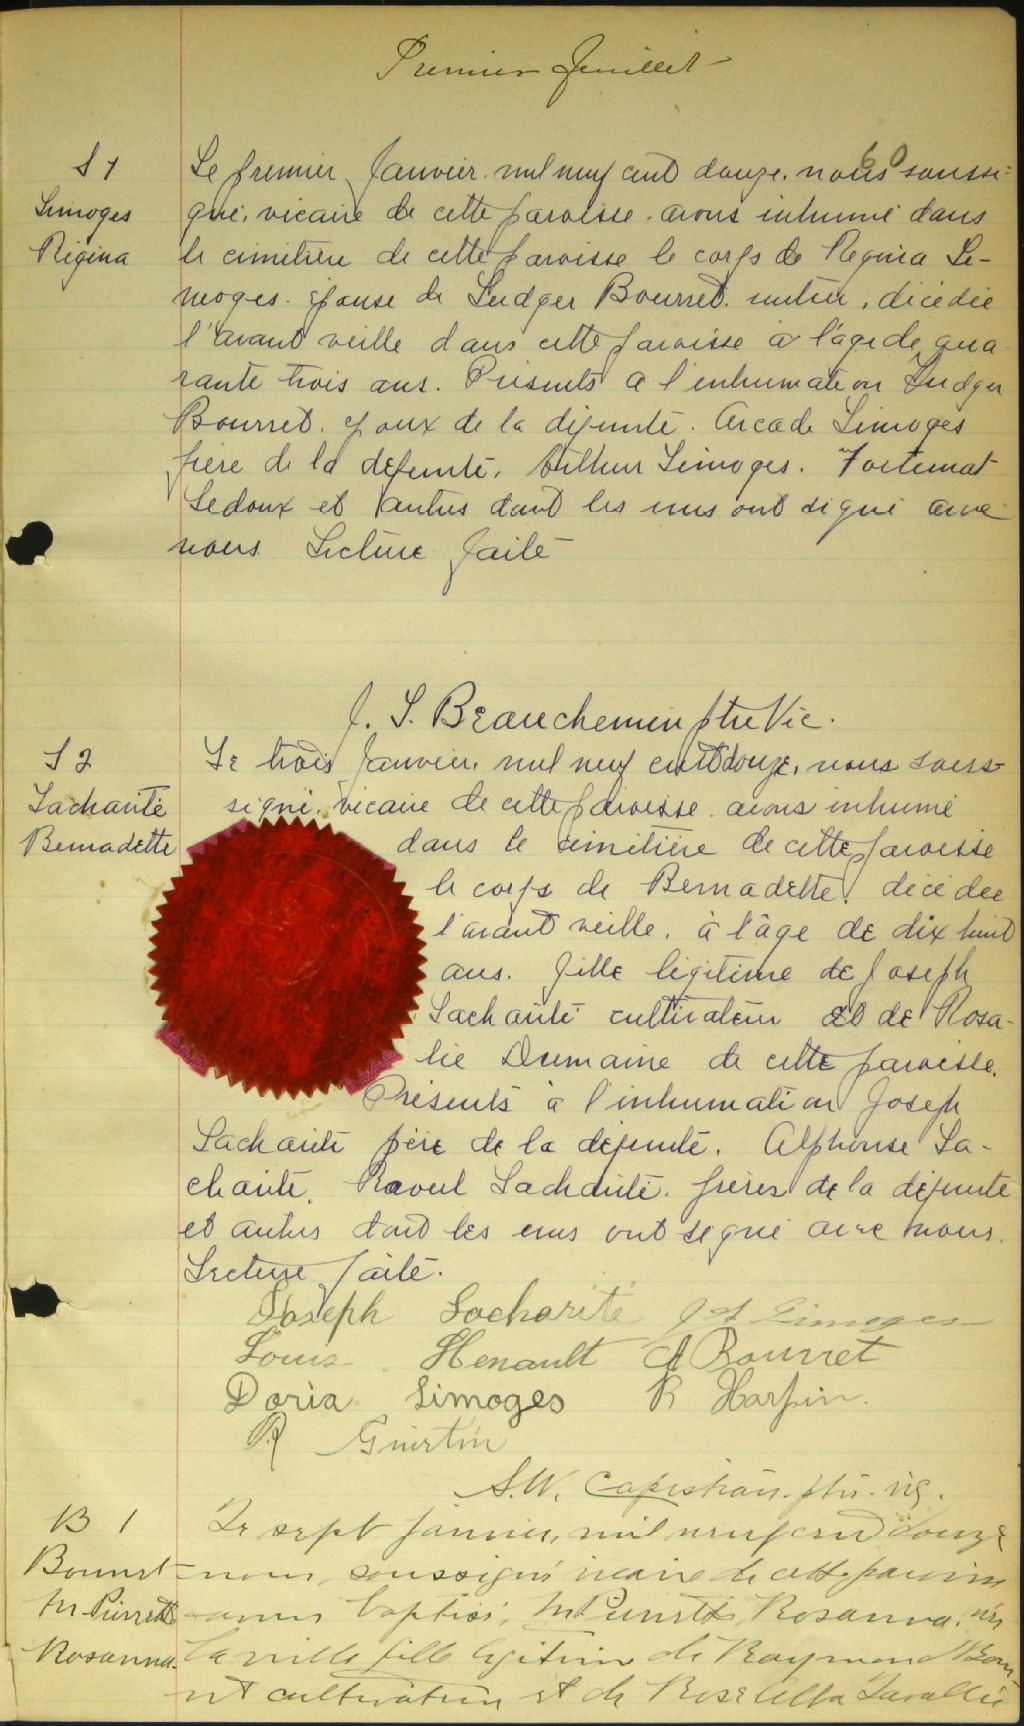 Premier feuillet
S 1
Limoges
Régina
Le premier Janvier. mil neuf cent douze. nous soussi=
gné, vicaire de cette paroisse. avons inhumé dans
le cimitière de cette paroisse le corps de Regina Li-
moges. épouse de Ludger Bourret. rentier, décédée
l'avant veille dans cette paroisse à l'age de qua
rante trois ans. Présents a l'inhumation Ludger
Bourret. epoux de la défunte. Arcade Limoges
frère de la défunte, Arthur Limoges. Fortunat
Ledoux et autres dont les uns ont signé avec
nous Lecture faite
J. S. Beauchemin ptre Vic.
S 2
Lacharité
Bernadette
Le trois Janvier, mil neuf cent douze, nous sous-
signé, vicaire de cette paroisse. avons inhumé
dans le cimitière de cette paroisse
le corps de Bernadette, décédée
l'avant veille. à l'âge de dix huit
ans. fille légitime de Joseph
Lacharité cultivateur et de Rosa-
lie Dumaine de cette paroisse.
Présents à l'inhumation Joseph
Lacharité père de la défunte. Alphonse La-
charité, Raoul Lacharité. frères de la défunte
et autres dont les uns ont signé avec nous.
Lecture faite.
Joseph Lacharité Limoges
Louis Henault A Bourret
Doria Limoges R Harpin.
R Guertin
S.W. Capistran. ptr. vic.
B 1
Bourret
M Pierrette
Rosanna
Le sept janvier, mil neuf cent douze
nous, soussigné vicaire de cette paroisse
avons baptisé, M Pierrette Rosanna, née
la veille fille légitime de Raymond Bour
ret cultivateur et de Rose Lavallée